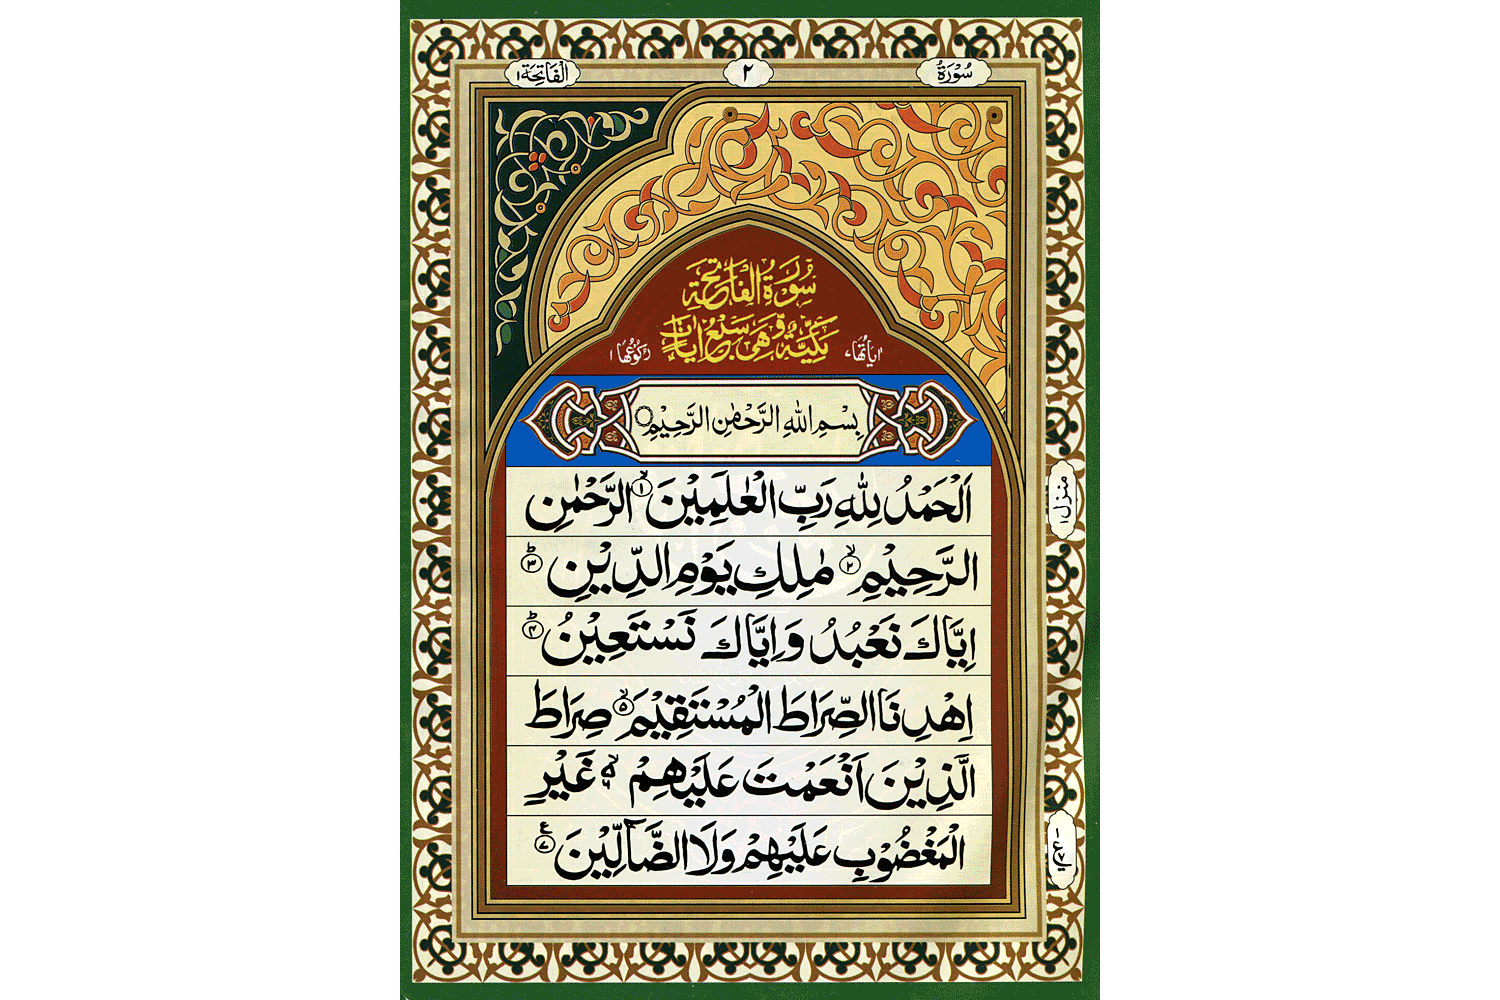 سُوْرَةُ
٢
اَلْفَاتِحَة ١
سُوْرَةُ الْفَاتِحَةِ
مَكِّيَّةٌ وَّهِىَ سَبْعُ اٰيَاتٍ
اٰيَاتُهَا ٧
رُكُوْعُهَا ١
بِسْمِ اللهِ الرَّحْمٰنِ الرَّحِيْمِ
اَلْحَمْدُ لِلّٰهِ رَبِّ الْعٰلَمِيْنَ ۙ ١ الرَّحْمٰنِ
الرَّحِيْمِ ۙ ٢ مٰلِكِ يَوْمِ الدِّيْنِ ؕ ٣
اِيَّاكَ نَعْبُدُ وَاِيَّاكَ نَسْتَعِيْنُ ؕ ۴
اِهْدِنَا الصِّرَاطَ الْمُسْتَقِيْمَ ۙ ۵ صِرَاطَ
الَّذِيْنَ اَنْعَمْتَ عَلَيْهِمْ ۙ ۶ غَيْرِ
الْمَغْضُوْبِ عَلَيْهِمْ وَلَا الضَّآلِّيْنَ ٧ ع
منزل ١